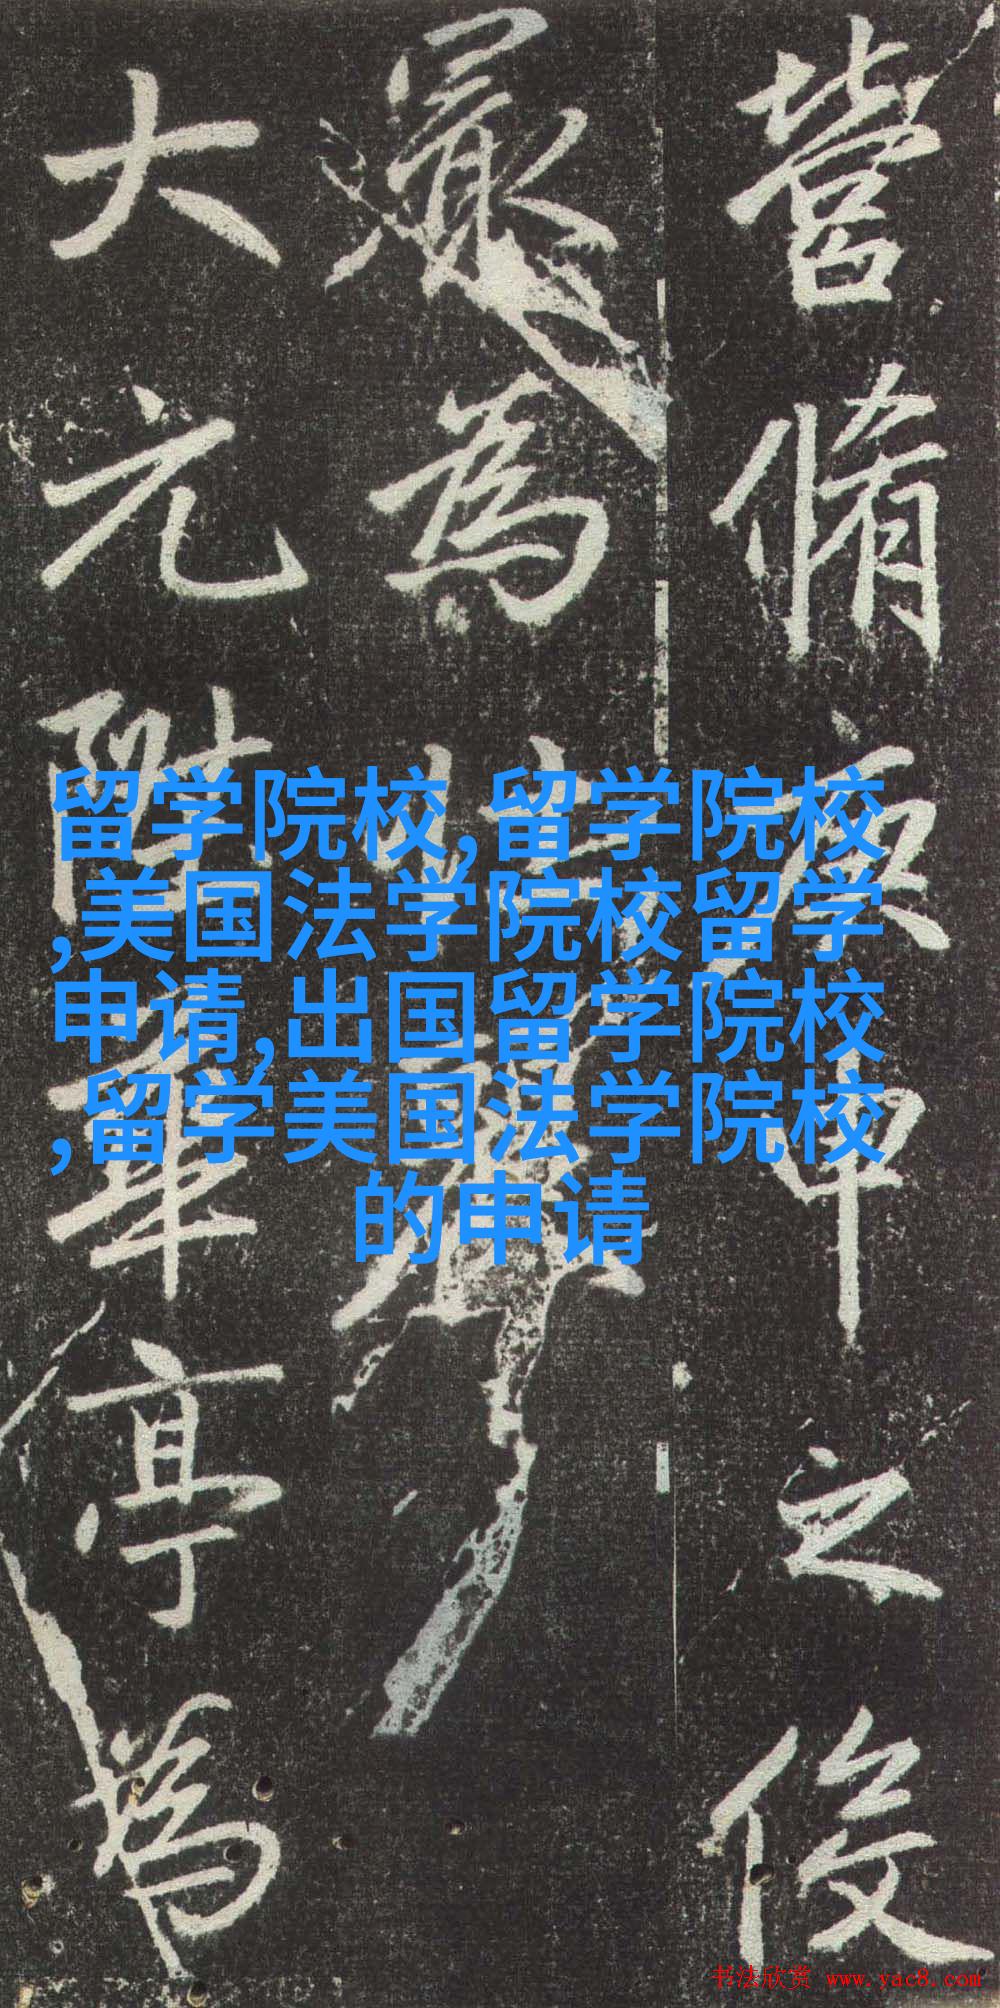 营脩废甲之俊
最為
大元階華亭為
留学院校,留学院校
,美国法学院校留学
申请,出国留学院校
,留学美国法学院校
的申请
书法欣赏 www.yac8.com